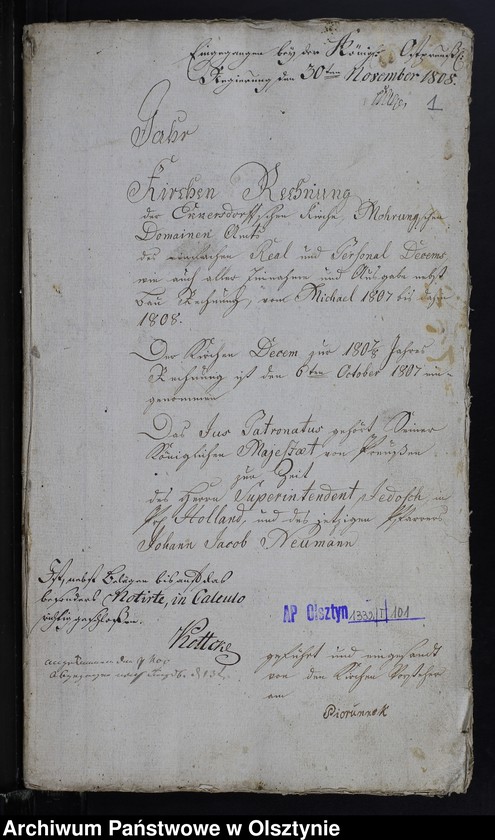 Eingegangen bey der Königl. Ostpreuß.
Regierung, den 30ten November 1808.
1
Jahr
Kirchen Rechnung
der Eckersdorffschen Kirche, Mohrungschen
Domainen Amts
des einfachen Real und Personal Decems,
wie auch aller Einnahme und Ausgabe nebst
Bau Rechnung, vom Michael 1807 bis dahin
1808.
Der Kirchen Decem zur 1807/8 Jahres
Rechnung ist den 6ten October 1807 ein-
genommen
Das Jus Patronatus gehört Seiner
Königlichen Majestaet von Preußen
zur Zeit
des Herrn Superintendent Jedosch, in
Pr. Holland, und des jetzigen Pfarrers
Johann Jacob Neumann
Ist, nebst Belägen bis auf das
besonders Notirte, in Calculo
richtig geschloßen.
AP Olsztyn 1332/I/101
Kottcke
geführt und eingesandt
von den Kirchen Vorsteher
am
Piorunnek
Archiwum Państwowe w Olsztynie